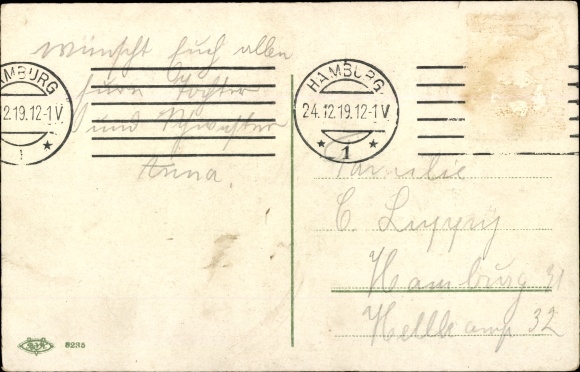 wünscht Euch allen
Eure Tochter
und Schwester
Anna.
HAMBURG
12.19.12-1 V.
1
HAMBURG
24.12.19.12-1 V.
* 1 *
Familie
C.
Hamburg 31
Hellkamp 32
8235